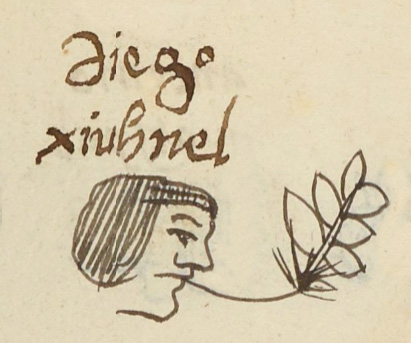 diego
xiuhnel